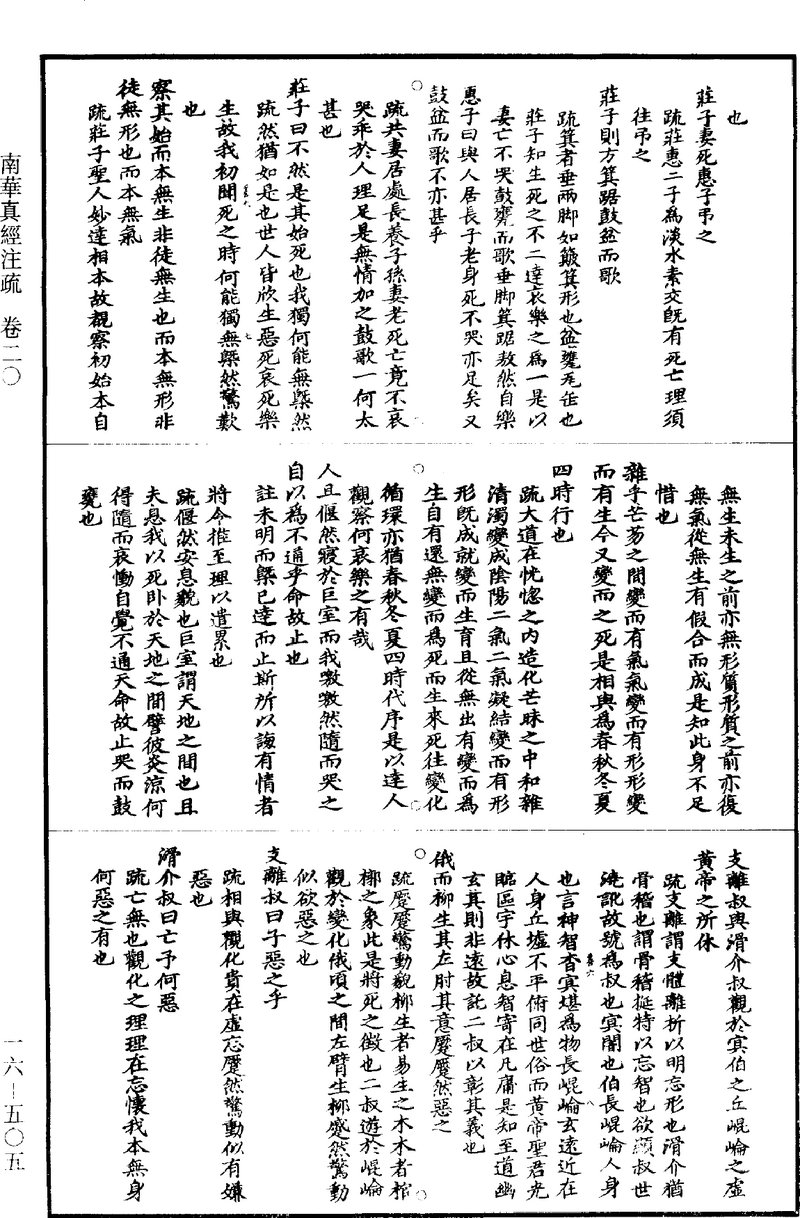 南華真經注疏　卷二〇
也
莊子妻死惠子弔之
疏莊惠二子為淡水素交既有死亡理須
往弔之
莊子則方箕踞鼓盆而歌
疏箕者垂兩脚如簸箕形也盆甕瓦缶也
莊子知生死之不二達哀樂之為一是以
妻亡不哭鼓甕而歌垂脚箕踞敖然自樂
惠子曰與人居長子老身死不哭亦足矣又
鼓盆而歌不亦甚乎
疏共妻居處長養子孫妻老死亡竟不哀
哭乖於人理足是無情加之鼓歌一何太
甚也
莊子曰不然是其始死也我獨何能無槩然
疏然猶如是也世人皆欣生惡死哀死樂
生故我初聞死之時何能獨無槩然驚歎
也
察其始而本無生非徒無生也而本無形非
徒無形也而本無氣
疏莊子聖人妙達相本故覩察初始本自
無生未生之前亦無形質形質之前亦復
無氣從無生有假合而成是知此身不足
惜也
雜乎芒芴之間變而有氣氣變而有形形變
而有生今又變而之死是相與為春秋冬夏
四時行也
疏大道在恍惚之內造化芒昧之中和雜
清濁變成陰陽二氣二氣凝結變而有形
形既成就變而生育且從無出有變而為
生自有還無變而為死而生來死往變化
循環亦猶春秋冬夏四時代序是以達人
觀察何哀樂之有哉
人且偃然寢於巨室而我噭噭然隨而哭之
自以為不通乎命故止也
註未明而槩已達而止斯所以誨有情者
將令推至理以遣累也
疏偃然安息貌也巨室謂天地之間也且
夫息我以死卧於天地之間譬彼炎涼何
得隨而哀慟自覺不通天命故止哭而鼓
甕也
支離叔與滑介叔觀於冥伯之丘崐崘之虛
黃帝之所休
疏支離謂支體離析以明忘形也滑介猶
骨稽也謂骨稽挻特以忘智也欲顯叔世
澆訛故號為叔也冥闇也伯長崐崘人身
也言神智杳冥堪為物長崐崘玄遠近在
人身丘墟不平俯同世俗而黃帝聖君光
臨區宇休心息智寄在凡庸是知至道幽
玄其則非遠故託二叔以彰其義也
俄而柳生其左肘其意蹷蹷然惡之
疏蹷蹷驚動貌柳生者易生之木木者棺
槨之象此是將死之徵也二叔遊於崐崘
觀於變化俄頃之間左臂生柳蹷然驚動
似欲惡之也
支離叔曰子惡之乎
疏相與觀化貴在虛忘蹷然驚動似有嫌
惡也
滑介叔曰亡予何惡
疏亡無也觀化之理理在忘懷我本無身
何惡之有也
一六—五〇五